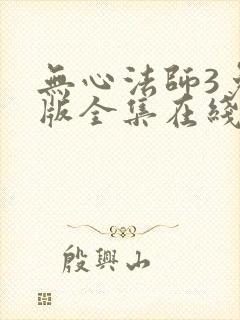 無心法師3
版全集在綫
殷興山